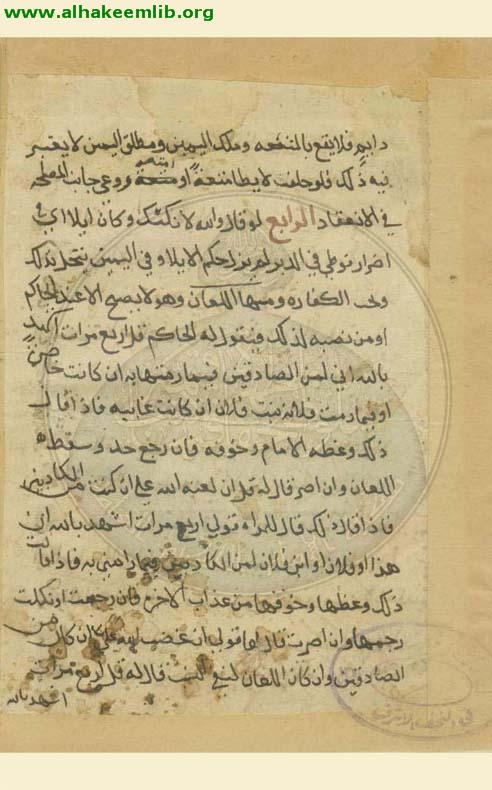 www.alhakeemlib.org
دايم فلا يقع بالمتعه وملك اليمين ومطلق اليمين لا يعتبر
فيه ذلك فلو حلف لا يطا متعة او امته وروعي جانب المصلحة
في الانعقاد الرابع لو قال والله لا نكتك وكان ايلاا في
اضرار فوطي في الدبر لم يزل حكم الايلا وفي اليمين ينحل بذلك
وتجب الكفاره ومنها اللعان وهو لا يصح الا عند الحاكم
او من نصبه لذلك فيقول له الحاكم قل اربع مرات اشهد
بالله اني لمن الصادقين فيما رميتها به ان كانت حاضرة
او فيما رميت فلانه بنت فلان ان كانت غايبه فاذا قال
ذلك وعظه الامام وخوفه فان رجع حد وسقط
اللعان وان اصر قال له قل ان لعنه الله علي ان كنت من الكاذبين
فاذا قال ذلك قال للمراه قولي اربع مرات اشهد بالله ان
هذا او فلان او ابن فلان لمن الكاذبين فيما رماني به فاذا قالت
ذلك وعظها وخوفها من عذاب الاخره فان رجعت او نكلت
رجمها وان اصرت قال لها قولي ان غضب الله علي ان كان من
الصادقين وان كان اللعان لنفي قال له قل اربع مرات
اشهد بالله